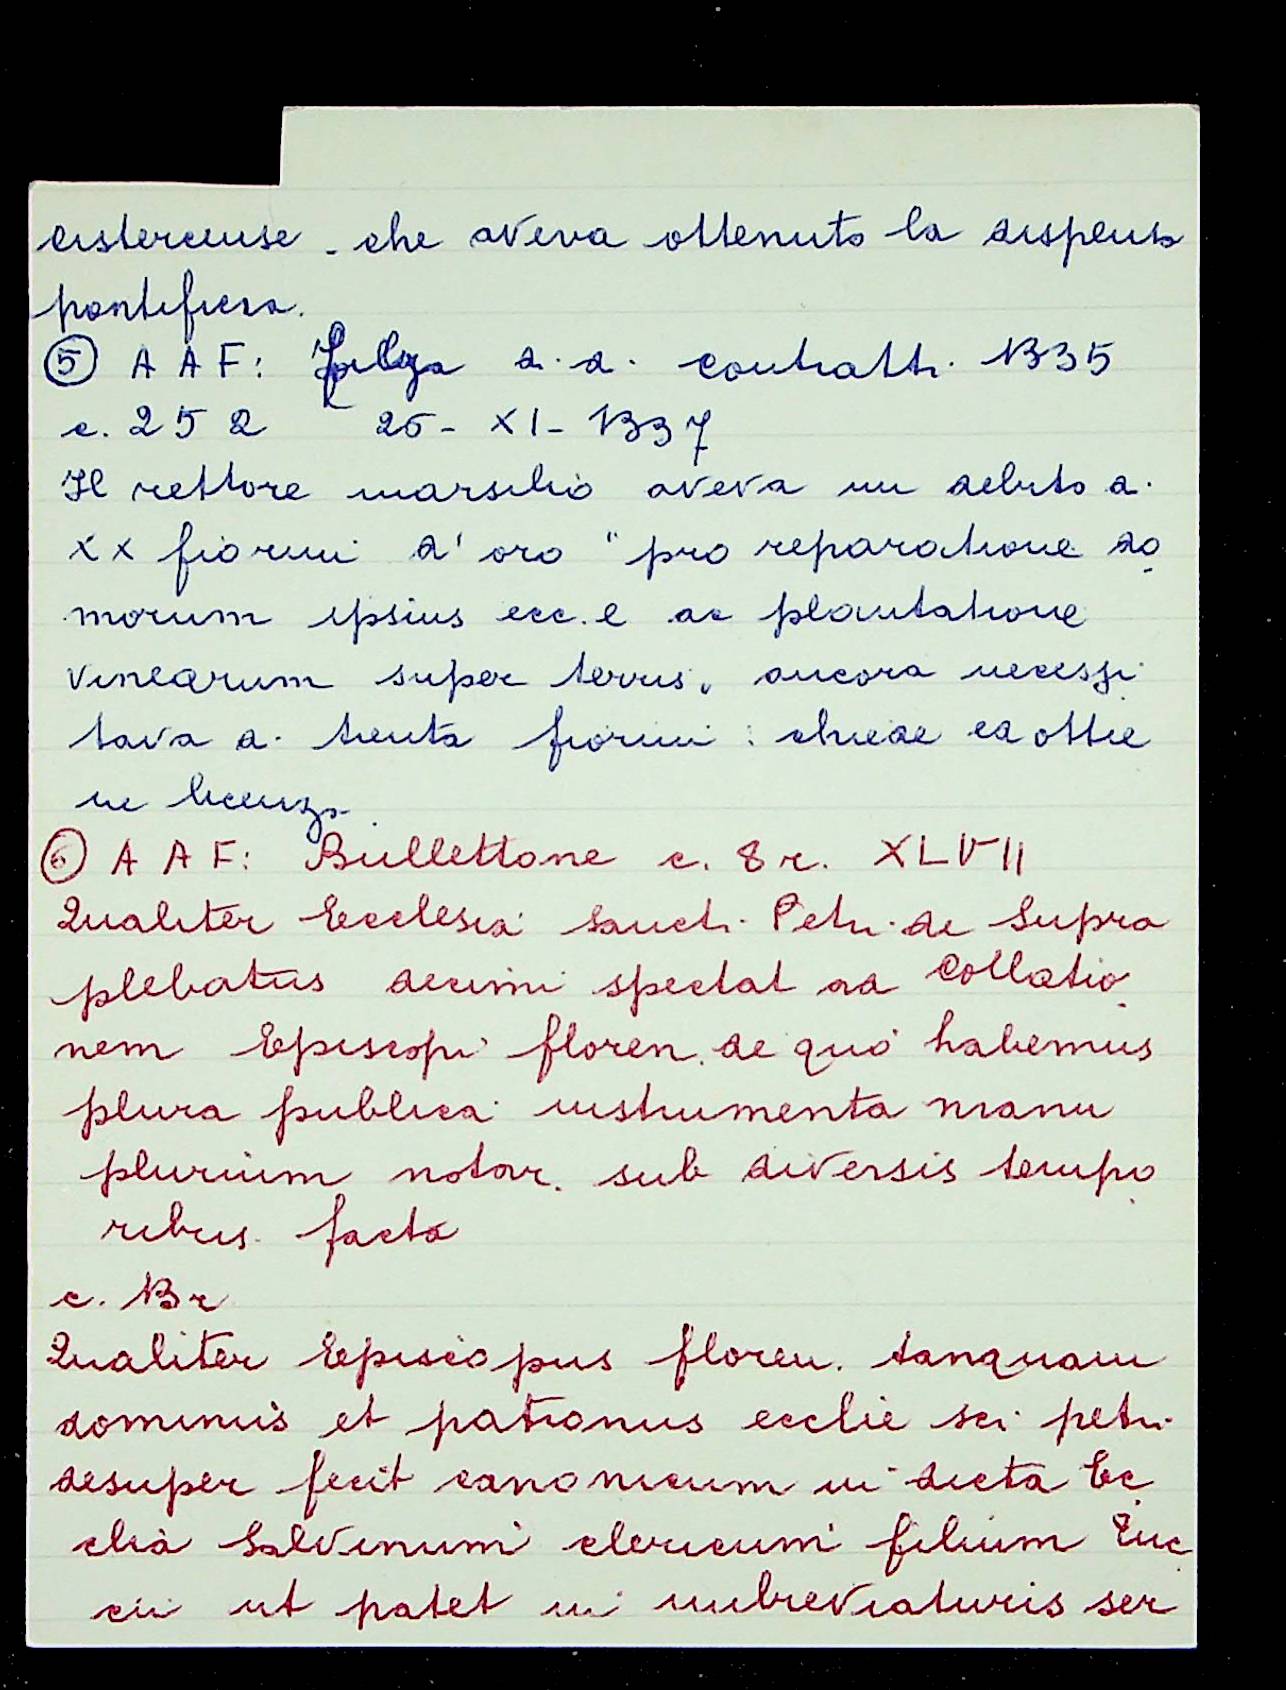 cistercense - che aveva ottenuto la dispensa
pontificia.
⑤ A A F: Filza d. a. contratti. 1335
c. 252 26 - XI - 1337
Il rettore marsilio aveva un debito d.
XX fiorini d'oro "pro reparatione do
morum ipsius ecc.e ac plantatione
vinearum super terris, ancora necessi
tava d. trenta fiorini: chiede ed ottie
ne licenza.
⑥ A A F: Bullettone c. 8 r. XLVII
Qualiter Ecclesia Sancti Petri de Supra
plebatus decimi spectat ad Collatio
nem Episcopi floren. de quo habemus
plura publica instrumenta manu
plurium notar. sub diversis tempo
ribus facta
c. 13 r
Qualiter Episcopus floren. tanquam
dominus et patronus ecclie sci petri
desuper fecit canonicum in dicta Ec
clia Salvinum clericum filium
cii ut patet in imbreviaturis ser